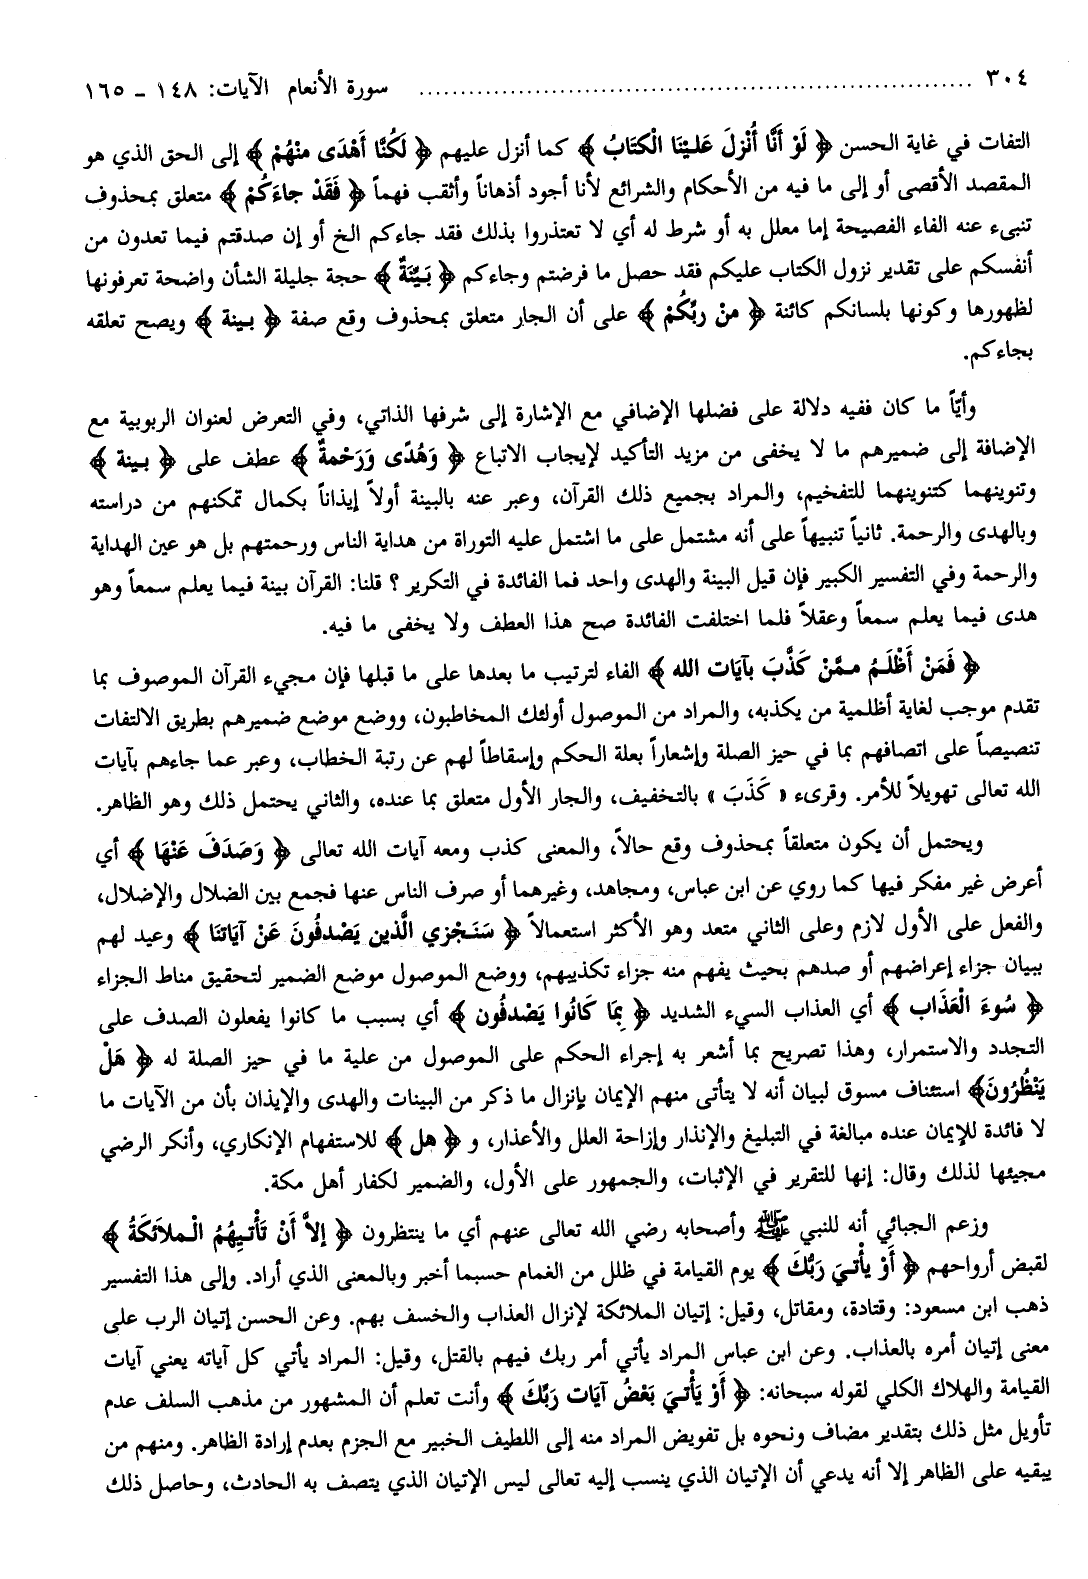 ٣٠٤ ........ سورة الأنعام الآيات: ١٤٨ - ١٦٥
التفات في غاية الحسن ﴿ لَوْ أَنَّا أُنْزِلَ عَلَيْنَا الْكتَابُ ﴾ كما أنزل عليهم ﴿ لَكُنَّا أَهْدَى منْهُمْ ﴾ إلى الحق الذي هو
المقصد الأقصى أو إلى ما فيه من الأحكام والشرائع لأنا أجود أذهاناً وأثقب فهماً ﴿ فَقَدْ جاءَكُمْ ﴾ متعلق بمحذوف
تنبىء عنه الفاء الفصيحة إما معلل به أو شرط له أي لا تعتذروا بذلك فقد جاءكم الخ أو إن صدقتم فيما تعدون من
أنفسكم على تقدير نزول الكتاب عليكم فقد حصل ما فرضتم وجاءكم ﴿ بَيِّنَةٌ ﴾ حجة جليلة الشأن واضحة تعرفونها
لظهورها وكونها بلسانكم كائنة ﴿ منْ ربِّكُمْ ﴾ على أن الجار متعلق بمحذوف وقع صفة ﴿ بينة ﴾ ويصح تعلقه
بجاءكم.
وأيّاً ما كان ففيه دلالة على فضلها الإضافي مع الإشارة إلى شرفها الذاتي، وفي التعرض لعنوان الربوبية مع
الإضافة إلى ضميرهم ما لا يخفى من مزيد التأكيد لإيجاب الاتباع ﴿ وَهُدًى وَرَحْمةٌ ﴾ عطف على ﴿ بينة ﴾
وتنوينهما كتنوينهما للتفخيم، والمراد بجميع ذلك القرآن، وعبر عنه بالبينة أولاً إيذاناً بكمال تمكنهم من دراسته
وبالهدى والرحمة. ثانياً تنبيهاً على أنه مشتمل على ما اشتمل عليه التوراة من هداية الناس ورحمتهم بل هو عين الهداية
والرحمة وفي التفسير الكبير فإن قيل البينة والهدى واحد فما الفائدة في التكرير ؟ قلنا: القرآن بينة فيما يعلم سمعاً وهو
هدى فيما يعلم سمعاً وعقلاً فلما اختلفت الفائدة صح هذا العطف ولا يخفى ما فيه.
﴿ فَمَنْ أَظْلَمُ ممَّنْ كَذَّبَ بآيَات الله ﴾ الفاء لترتيب ما بعدها على ما قبلها فإن مجيء القرآن الموصوف بما
تقدم موجب لغاية أظلمية من يكذبه، والمراد من الموصول أولئك المخاطبون، ووضع موضع ضميرهم بطريق الالتفات
تنصيصاً على اتصافهم بما في حيز الصلة وإشعاراً بعلة الحكم وإسقاطاً لهم عن رتبة الخطاب، وعبر عما جاءهم بآيات
الله تعالى تهويلاً للأمر. وقرىء « كَذَبَ » بالتخفيف، والجار الأول متعلق بما عنده، والثاني يحتمل ذلك وهو الظاهر.
ويحتمل أن يكون متعلقاً بمحذوف وقع حالاً، والمعنى كذب ومعه آيات الله تعالى ﴿ وَصَدَفَ عَنْهَا ﴾ أي
أعرض غير مفكر فيها كما روي عن ابن عباس، ومجاهد، وغيرهما أو صرف الناس عنها فجمع بين الضلال والإضلال،
والفعل على الأول لازم وعلى الثاني متعد وهو الأكثر استعمالاً ﴿ سَنَجْزي الَّذين يَصْدفُونَ عَنْ آيَاتنَا ﴾ وعيد لهم
ببيان جزاء إعراضهم أو صدهم بحيث يفهم منه جزاء تكذيبهم، ووضع الموصول موضع الضمير لتحقيق مناط الجزاء
﴿ سُوءَ الْعَذَاب ﴾ أي العذاب السيء الشديد ﴿ بمَا كَانُوا يَصْدفُون ﴾ أي بسبب ما كانوا يفعلون الصدف على
التجدد والاستمرار، وهذا تصريح بما أشعر به إجراء الحكم على الموصول من علية ما في حيز الصلة له ﴿ هَلْ
يَنْظُرُونَ﴾ استئناف مسوق لبيان أنه لا يتأتى منهم الإيمان بإنزال ما ذكر من البينات والهدى والإيذان بأن من الآيات ما
لا فائدة للإيمان عنده مبالغة في التبليغ والإنذار وإزاحة العلل والأعذار، و ﴿ هل ﴾ للاستفهام الإنكاري، وأنكر الرضي
مجيئها لذلك وقال: إنها للتقرير في الإثبات، والجمهور على الأول، والضمير لكفار أهل مكة.
وزعم الجبائي أنه للنبي ﷺ وأصحابه رضي الله تعالى عنهم أي ما ينتظرون ﴿ إلاَّ أَنْ تَأْتيهُمُ الْملائَكَةُ ﴾
لقبض أرواحهم ﴿ أَوْ يأْتيَ رَبُّكَ ﴾ يوم القيامة في ظلل من الغمام حسبما أخبر وبالمعنى الذي أراد. وإلى هذا التفسير
ذهب ابن مسعود: وقتادة، ومقاتل، وقيل: إتيان الملائكة لإنزال العذاب والخسف بهم. وعن الحسن إتيان الرب على
معنى إتيان أمره بالعذاب. وعن ابن عباس المراد يأتي أمر ربك فيهم بالقتل، وقيل: المراد يأتي كل آياته يعني آيات
القيامة والهلاك الكلي لقوله سبحانه: ﴿ أَوْ يَأْتيَ بَعْضُ آيَات رَبِّكَ ﴾ وأنت تعلم أن المشهور من مذهب السلف عدم
تأويل مثل ذلك بتقدير مضاف ونحوه بل تفويض المراد منه إلى اللطيف الخبير مع الجزم بعدم إرادة الظاهر. ومنهم من
يبقيه على الظاهر إلا أنه يدعي أن الإتيان الذي ينسب إليه تعالى ليس الإتيان الذي يتصف به الحادث، وحاصل ذلك